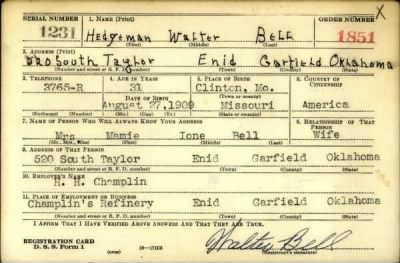 X
SERIAL NUMBER 1. NAME (Print) ORDER NUMBER
1231 Hedgeman Walter Bell 1851
(First) (Middle) (Last)
2. ADDRESS (Print)
520 South Taylor Enid Garfield Oklahoma
(Number and street or R. F. D. number) (Town) (County) (State)
3. TELEPHONE 4. AGE IN YEARS 5. PLACE OF BIRTH 6. COUNTRY OF CITIZENSHIP
3765-R 31 Clinton, Mo.
DATE OF BIRTH (Town or county)
August 27, 1909 Missouri America
(Mo.) (Day) (Yr.) (State or country)
7. NAME OF PERSON WHO WILL ALWAYS KNOW YOUR ADDRESS 8. RELATIONSHIP OF THAT PERSON
Mrs Mamie Ione Bell Wife
(Mr., Mrs., Miss) (First) (Middle) (Last)
9. ADDRESS OF THAT PERSON
520 South Taylor Enid Garfield Oklahoma
(Number and street or R. F. D. number) (Town) (County) (State)
10. EMPLOYER'S NAME
H. H. Champlin
11. PLACE OF EMPLOYMENT OR BUSINESS
Champlin's Refinery Enid Garfield Oklahoma
(Number and street or R. F. D. number) (Town) (County) (State)
I AFFIRM THAT I HAVE VERIFIED ABOVE ANSWERS AND THAT THEY ARE TRUE.
REGISTRATION CARD
D. S. S. Form 1 (over) Walter Bell
(Registrant's signature)